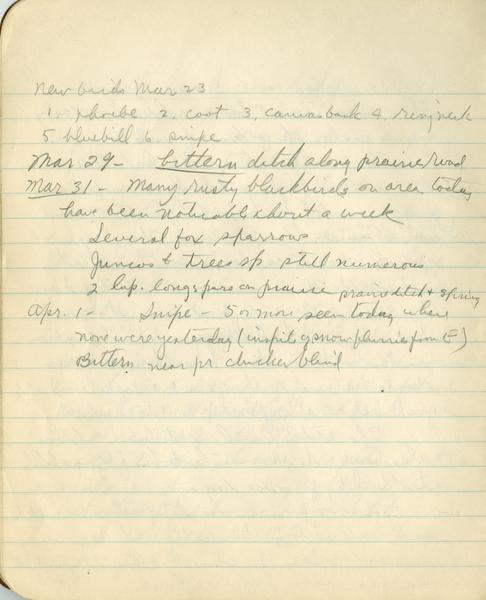 New birds Mar 23
1. phoebe 2. coot 3. canvasback 4. ringneck
5. bluebill 6. snipe
Mar 29 - bittern ditch along prairie road
Mar 31 - Many rusty blackbirds on area today
have been noticable about a week
Several fox sparrows
Juncos & tree sp still numerous
2 lap. longspars on prairie
prairie ditch & spring
Apr. 1 - Snipe - 5 or more seen today where
none were yesterday (in spite of snow flurries from E)
Bittern near pr chicken blind